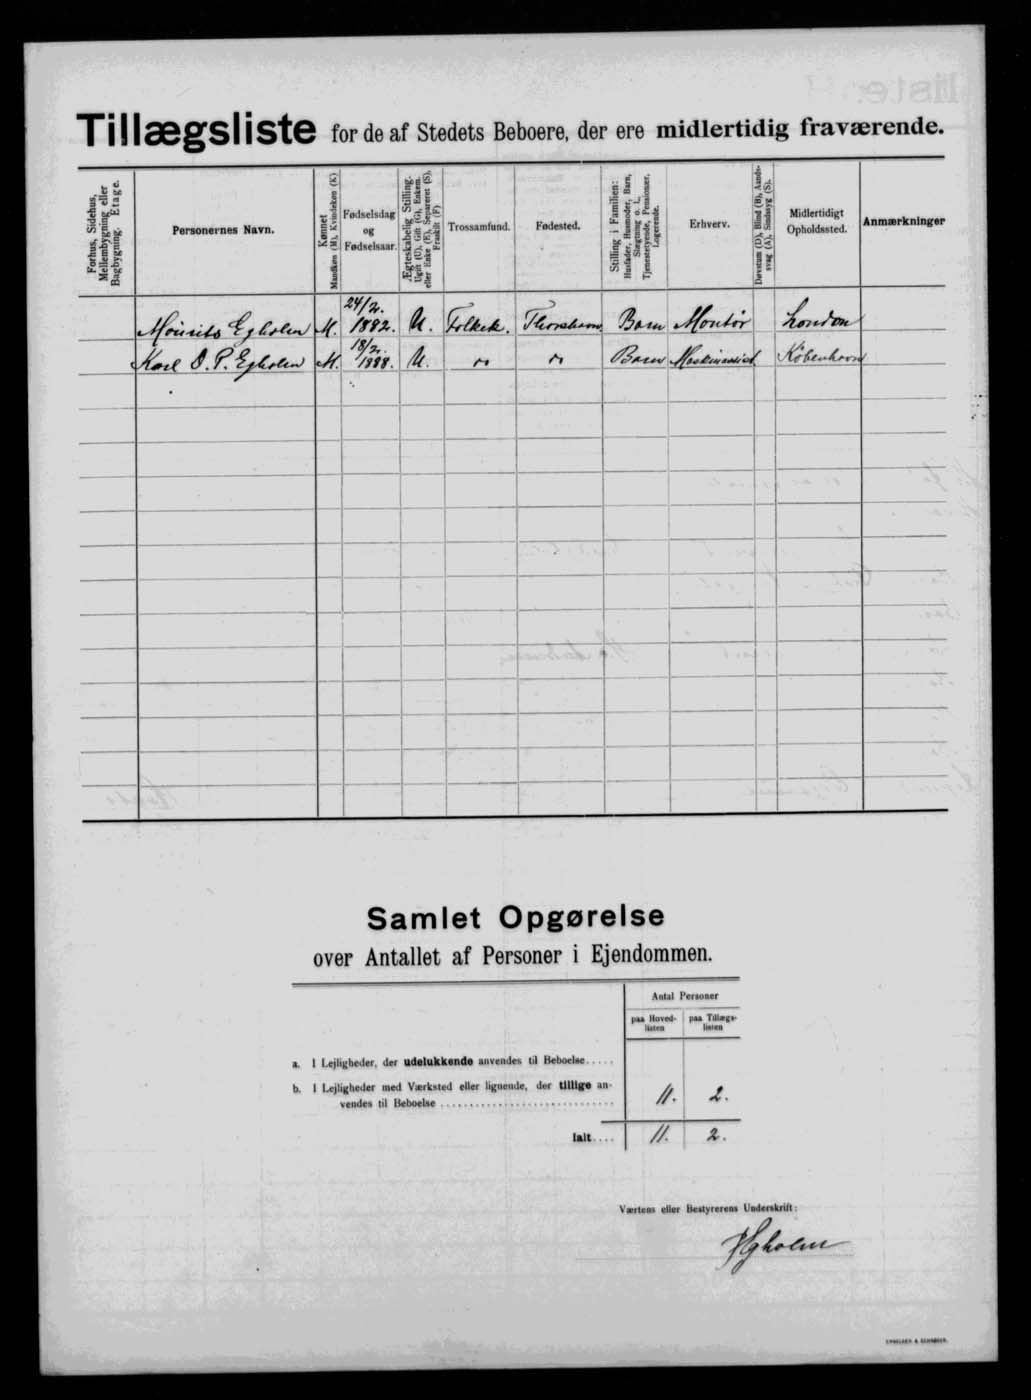 Tillægsliste for de af Stedets Beboere, der ere midlertidig fraværende.
Forhus, Sidehus, Mellembygning eller Bagbygning. Etage.
Personernes Navn.
Kønnet Mandkøn (M), Kvindekøn (K)
Fødselsdag og Fødselsaar.
Ægteskabelig Stilling. Ugift (U), Gift (G), Enkem. eller Enke (E), Separeret (S), Fraskilt (F)
Trossamfund.
Fødested.
Stilling i Familien: Husfader, Husmoder, Barn, Slægtning o. l., Tjenestetyende, Pensionær, Logerende.
Erhverv.
Døvstum (D), Blind (B), Aandssvag (A), Sindssyg (S).
Midlertidigt Opholdssted.
Anmærkninger
Mourits Egholm M. 24/2. 1882. U. Folkek. Thorshavn Barn Montør London
Karl O. P. Egholm M. 18/2. 1888. U. do do Barn Maskinarist København
Samlet Opgørelse
over Antallet af Personer i Ejendommen.
Antal Personer
paa Hoved-listen
paa Tillægs-listen
a. I Lejligheder, der udelukkende anvendes til Beboelse.....
b. I Lejligheder med Værksted eller lignende, der tillige an-
vendes til Beboelse .............................. 11. 2.
Ialt.... 11. 2.
Værtens eller Bestyrerens Underskrift:
Egholm